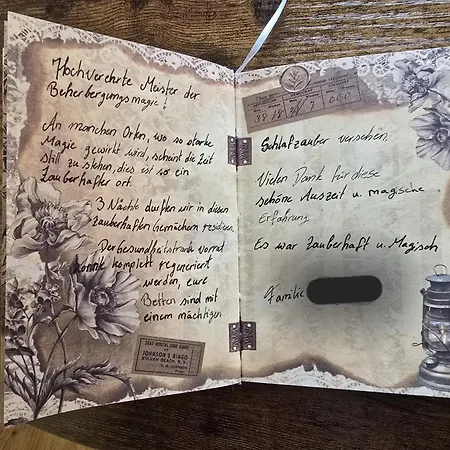 Hochverehrte Meister der
Beherbergungsmagie!
An manchen Orten, wo so starke
Magie gewirkt wird, scheint die Zeit
still zu stehen, dies ist so ein
Zauberhafter ort.
3 Nächte durften wir in diesen
zauberhaften Gemächern residieren.
Der Gesundheitstrank vorrat
konnte komplett regeneriert
werden, eure
Betten sind mit
einem mächtigen
SEAT RENTAL ONE GAME
AT
JOHNSON'S BINGO
SYLVAN BEACH, N. Y.
Schlafzauber versehen.
Vielen Dank für diese
schöne Auszeit u. magische
Erfahrung
Es war Zauberhaft u. Magisch
Familie